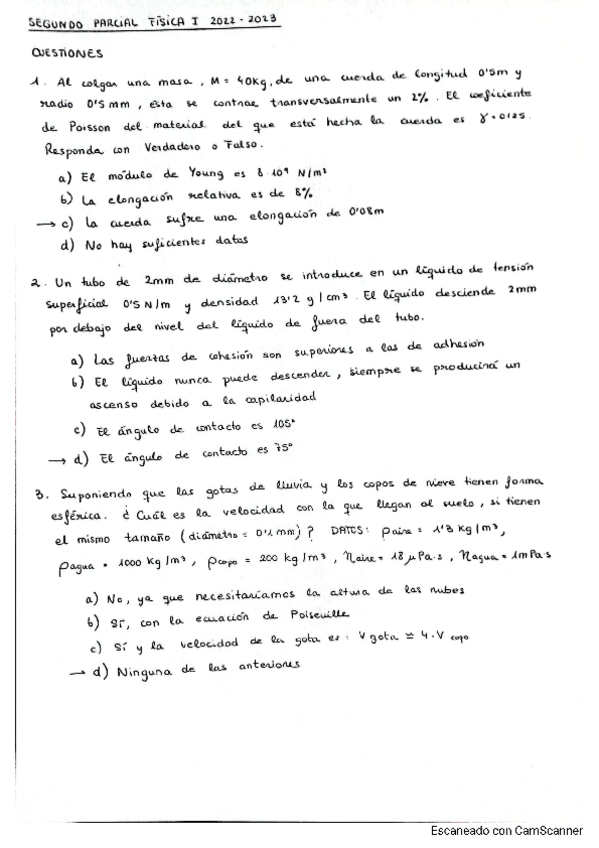 SEGUNDO PARCIAL FÍSICA I 2022-2023
CUESTIONES
1. Al colgar una masa, M = 40Kg, de una cuerda de longitud 0'5m y
radio 0'5 mm, ésta se contrae transversalmente un 2%. El coeficiente
de Poisson del material del que está hecha la cuerda es γ = 0'25.
Responda con Verdadero o Falso.
a) El módulo de Young es 8·10⁹ N/m²
b) La elongación relativa es de 8%
→ c) La cuerda sufre una elongación de 0'08m
d) No hay suficientes datos
2. Un tubo de 2mm de diámetro se introduce en un líquido de tensión
superficial 0'5 N/m y densidad 13'2 g/cm³. El líquido desciende 2mm
por debajo del nivel del líquido de fuera del tubo.
a) Las fuerzas de cohesión son superiores a las de adhesión
b) El líquido nunca puede descender, siempre se producirá un
ascenso debido a la capilaridad
c) El ángulo de contacto es 105°
→ d) El ángulo de contacto es 75°
3. Suponiendo que las gotas de lluvia y los copos de nieve tienen forma
esférica. ¿Cuál es la velocidad con la que llegan al suelo, si tienen
el mismo tamaño (diámetro = 0'1 mm)? DATOS: ρaire = 1'3 Kg/m³,
ρagua = 1000 Kg/m³, ρcopo = 200 kg/m³, ηaire = 18 μPa·s, ηagua = 1mPa·s
a) No, ya que necesitaríamos la altura de las nubes
b) Sí, con la ecuación de Poiseuille
c) Sí y la velocidad de la gota es: Vgota ≃ 4·Vcopo
→ d) Ninguna de las anteriores
Escaneado con CamScanner